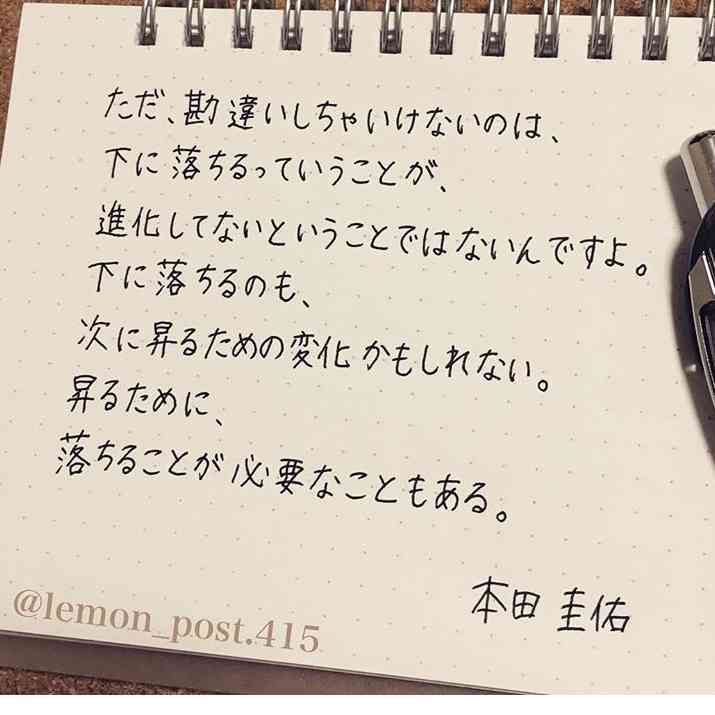 ただ、勘違いしちゃいけないのは、
下に落ちるっていうことが、
進化してないということではないんですよ。
下に落ちるのも、
次に昇るための変化かもしれない。
昇るために、
落ちることが必要なこともある。
本田圭佑
@lemon_post.415